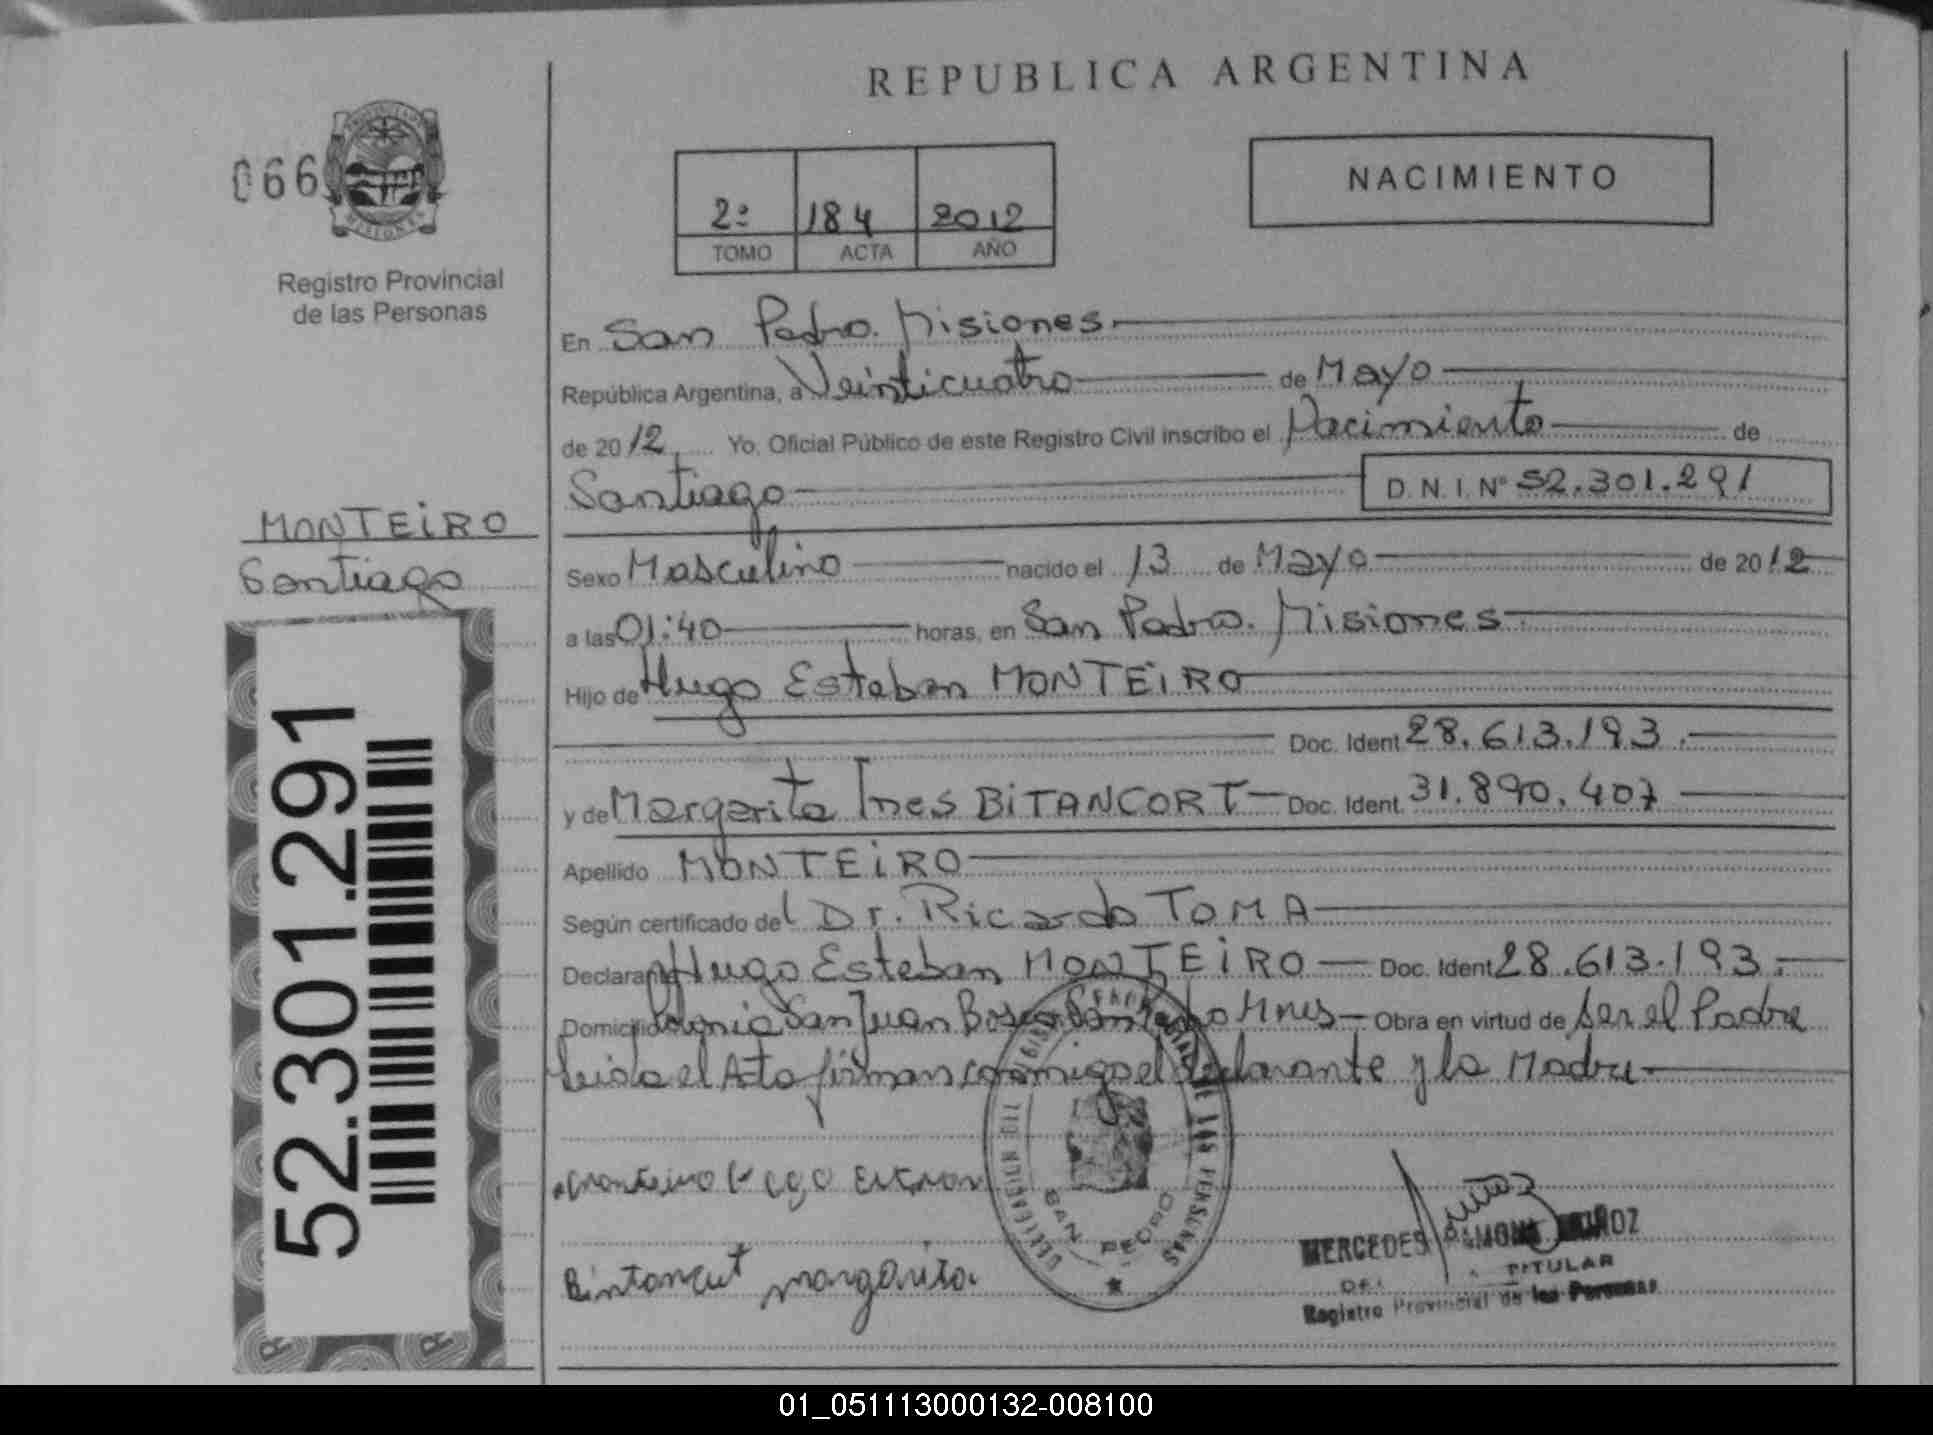 REPUBLICA ARGENTINA
066
PROVINCIA DE
MISIONES
Registro Provincial
de las Personas
2º 184 2012
TOMO ACTA AÑO
NACIMIENTO
En San Pedro. Misiones.
República Argentina, a Veinticuatro de Mayo
de 2012 Yo, Oficial Público de este Registro Civil inscribo el Nacimiento de
Santiago D.N.I. Nº 52.301.291
MONTEiRO
Santiago
Sexo Masculino nacido el 13 de Mayo de 2012
a las 01:40 horas, en San Pedro. Misiones
Hijo de Hugo Esteban MONTEiRO
Doc. Ident 28.613.193.
y de Margarita Ines BiTANCORT Doc. Ident. 31.890.407
Apellido MONTEiRO
Según certificado del Dr. Ricardo TOMA
Declarante Hugo Esteban MONTEiRO Doc. Ident 28.613.193.
Domicilio Colonia San Juan Bosco San Pedro Mnes Obra en virtud de Ser el Padre
leida el Acta firman conmigo el declarante y la Madre
52.301.291
DELEGACION DEL REGISTRO PROVINCIAL DE LAS PERSONAS
SAN PEDRO
Bintancut margarita
MERCEDES RAMONA MUÑOZ
TITULAR
Registro Provincial de las Personas
01_051113000132-008100